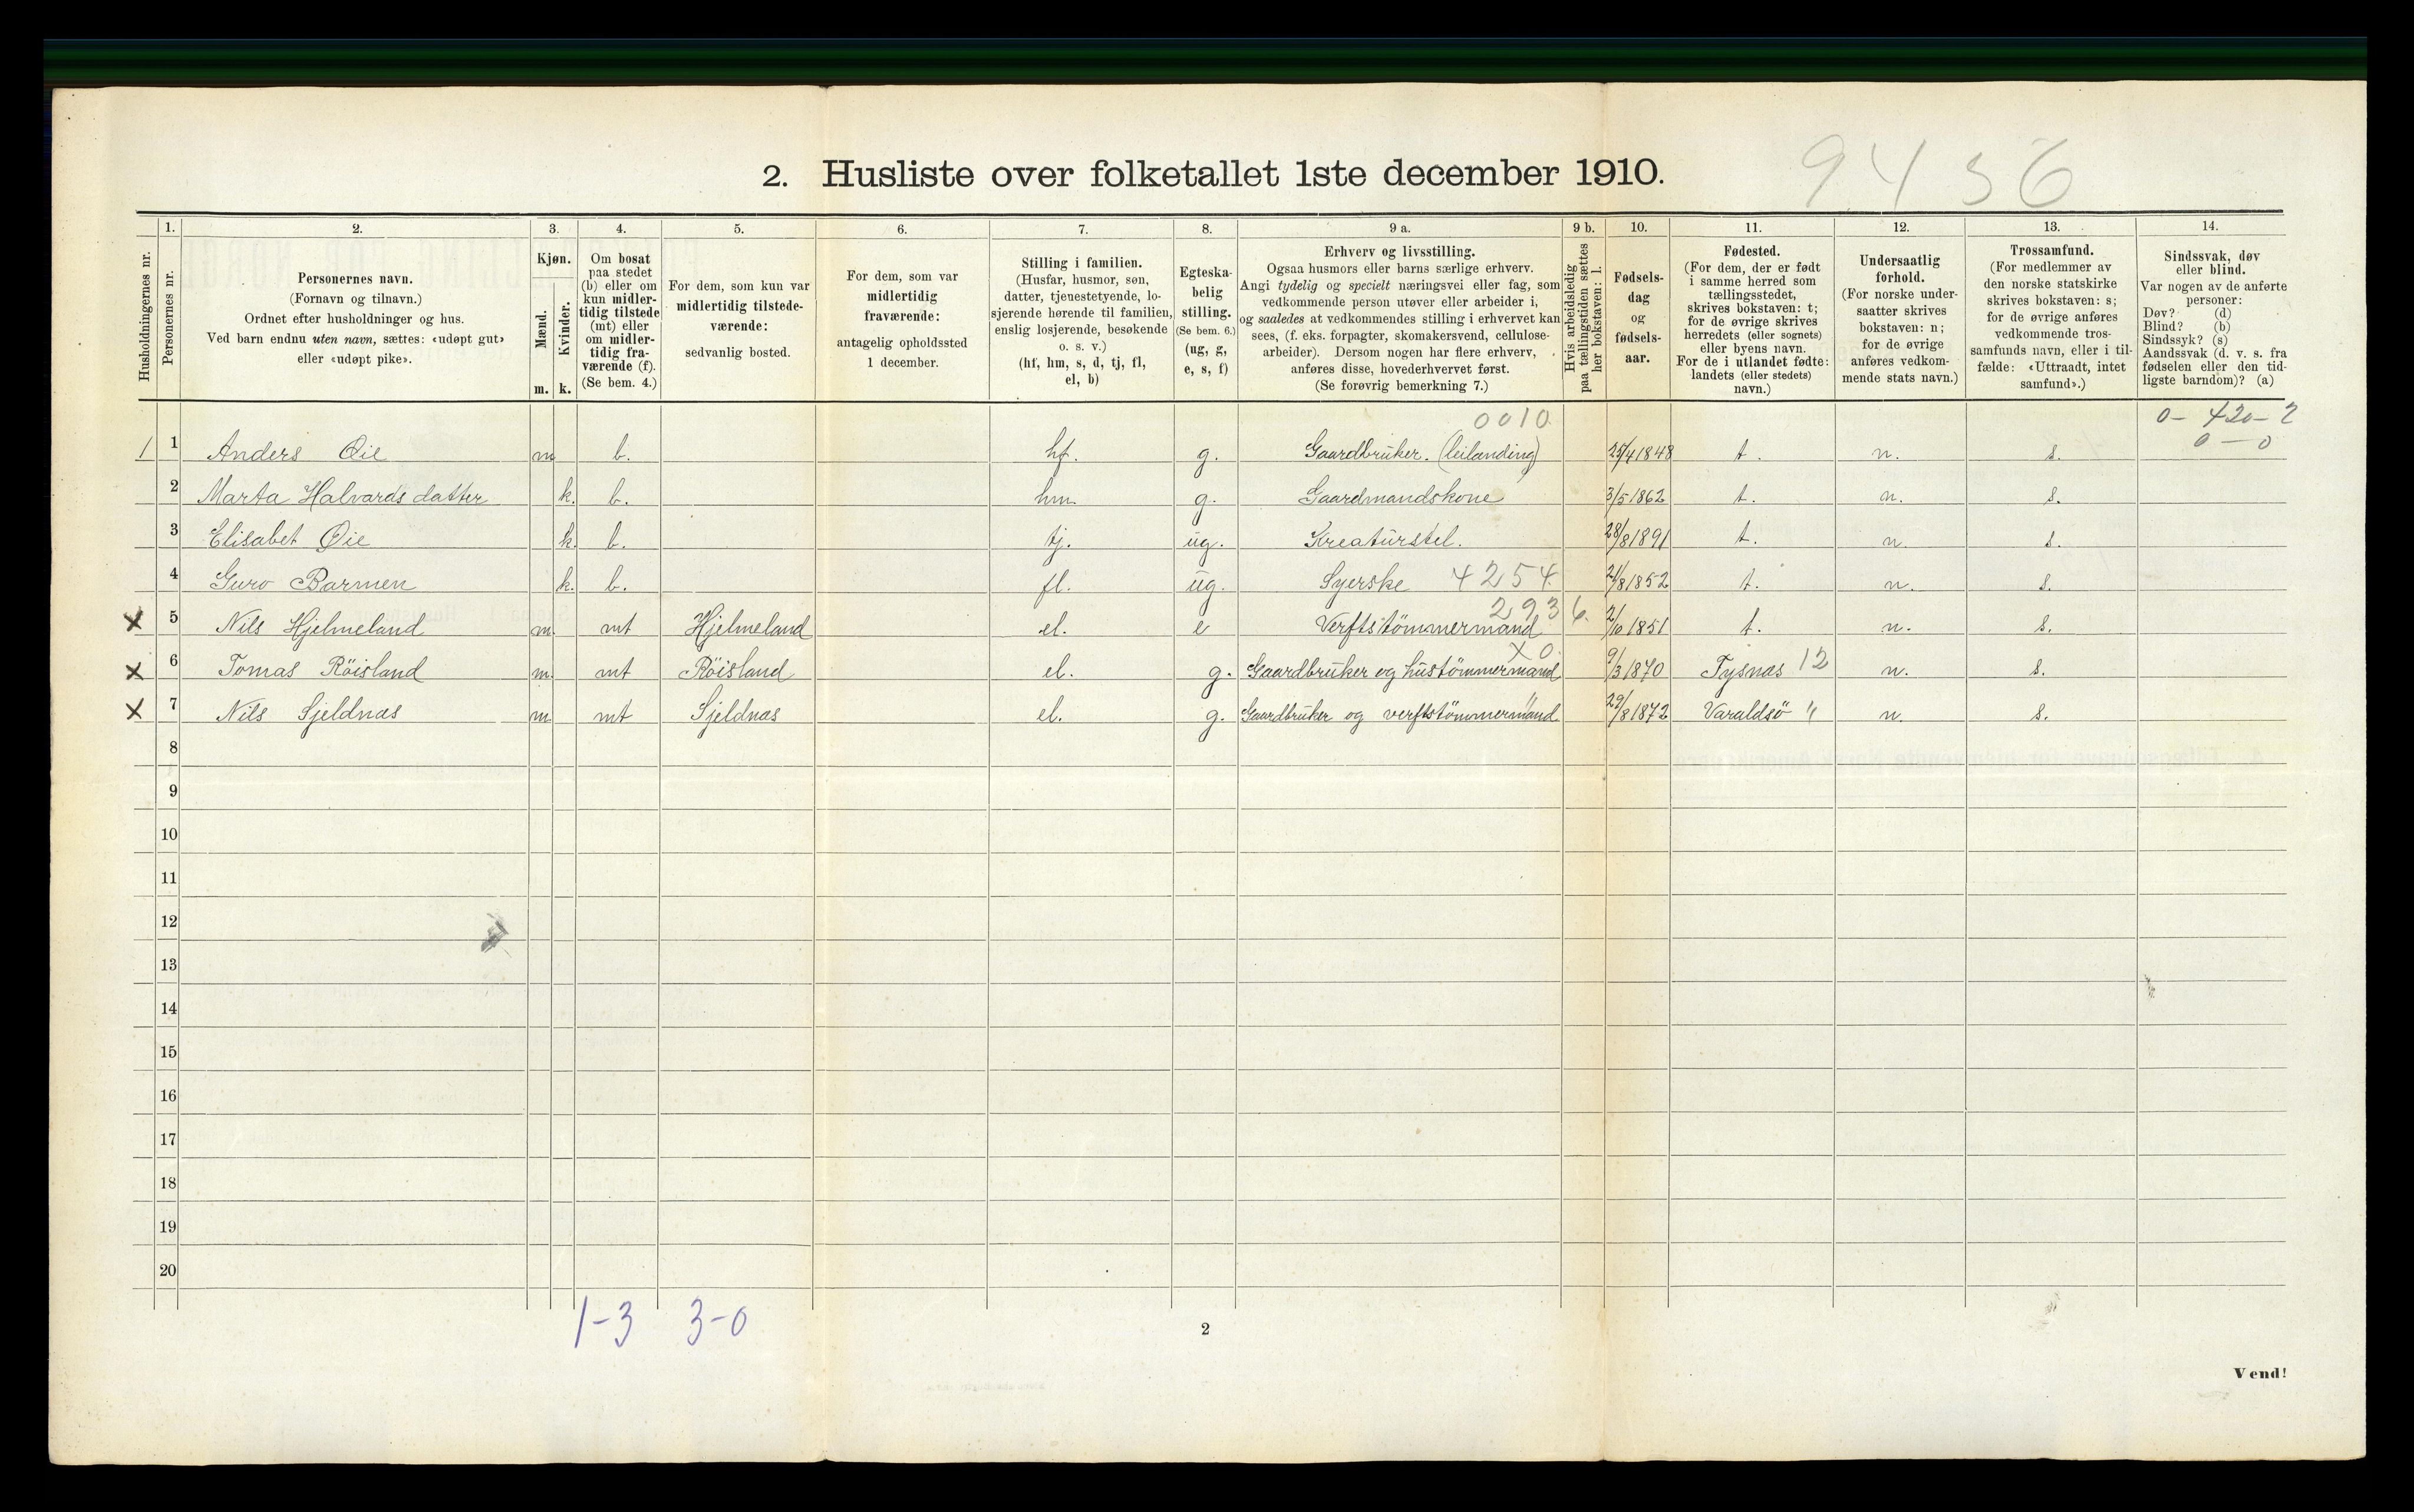 2. Husliste over folketallet 1ste december 1910.
9456
Husholdningernes nr.
1.
Personernes nr.
2.
Personernes navn.
(Fornavn og tilnavn.)
Ordnet efter husholdninger og hus.
Ved barn endnu uten navn, sættes: «udøpt gut»
eller «udøpt pike».
3.
Kjøn.
Mænd.
Kvinder.
m. k.
4.
Om bosat
paa stedet
(b) eller om
kun midler-
tidig tilstede
(mt) eller
om midler-
tidig fra-
værende (f).
(Se bem. 4.)
5.
For dem, som kun var
midlertidig tilstede-
værende:
sedvanlig bosted.
6.
For dem, som var
midlertidig
fraværende:
antagelig opholdssted
1 december.
7.
Stilling i familien.
(Husfar, husmor, søn,
datter, tjenestetyende, lo-
sjerende hørende til familien,
enslig losjerende, besøkende
o. s. v.)
(hf, hm, s, d, tj, fl,
el, b)
8.
Egteska-
belig
stilling.
(Se bem. 6.)
(ug, g,
e, s, f)
9 a.
Erhverv og livsstilling.
Ogsaa husmors eller barns særlige erhverv.
Angi tydelig og specielt næringsvei eller fag, som
vedkommende person utøver eller arbeider i,
og saaledes at vedkommendes stilling i erhvervet kan
sees, (f. eks. forpagter, skomakersvend, cellulose-
arbeider). Dersom nogen har flere erhverv,
anføres disse, hovederhvervet først.
(Se forøvrig bemerkning 7.)
9 b.
Hvis arbeidsledig
paa tællingstiden sættes
her bokstaven: l.
10.
Fødsels-
dag
og
fødsels-
aar.
11.
Fødested.
(For dem, der er født
i samme herred som
tællingsstedet,
skrives bokstaven: t;
for de øvrige skrives
herredets (eller sognets)
eller byens navn.
For de i utlandet fødte:
landets (eller stedets)
navn.)
12.
Undersaatlig
forhold.
(For norske under-
saatter skrives
bokstaven: n;
for de øvrige
anføres vedkom-
mende stats navn.)
13.
Trossamfund.
(For medlemmer av
den norske statskirke
skrives bokstaven: s;
for de øvrige anføres
vedkommende tros-
samfunds navn, eller i til-
fælde: «Uttraadt, intet
samfund».)
14.
Sindssvak, døv
eller blind.
Var nogen av de anførte
personer:
Døv? (d)
Blind? (b)
Sindssyk? (s)
Aandssvak (d. v. s. fra
fødselen eller den tid-
ligste barndom)? (a)
0010 0-420-2
0-0
1 1 Anders Øie m b. hf. g. Gaardbruker. (leilending) 25/4 1848 t. n. s.
2 Marta Halvardsdatter k. b. hm. g. Gaardmandskone 3/5 1862 t. n. s.
3 Elisabet Øie k. b. tj. ug. Kreaturstel. 28/8 1891 t. n. s.
4 Guro Barmen k. b. fl. ug. Syerske 4254 21/8 1852 t. n. s.
2936
x 5 Nils Hjelmeland m. mt Hjelmeland el. e Verftstömmermand 2/10 1851 t. n. s.
x0
x 6 Tomas Röisland m. mt Röisland el. g. Gaardbruker og hustömmermand 9/3 1870 Tysnas 12 n. s.
x 7 Nils Sjeldnas m mt Sjeldnas el. g. Gaardbruker og verftstömmermand 29/8 1872 Varaldsö " n. s.
8
9
10
11
12
13
14
15
16
17
18
19
20
1-3 3-0
2
Vend!